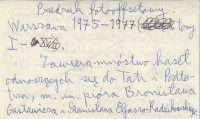 Przedruk fotooffsetowy:
Warszawa 1975-1977 tomy
I-
Zawiera mnóstwo haseł
odnoszących się do Tatr i Podta-
trza, m. in. pióra Bronisława
Gustawicza i Stanisława Eljasza-Radzikowskiego